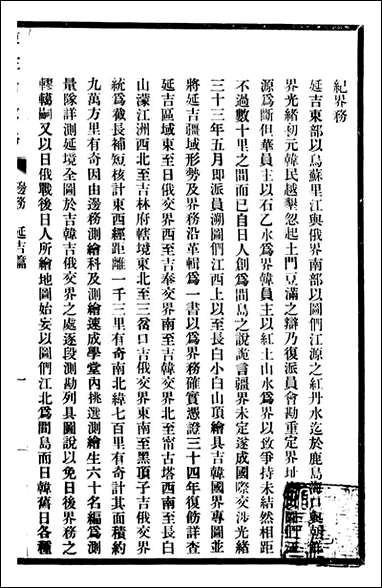 紀界務
延吉東部以烏蘇里江與俄界南部以圖們江源之紅丹水迄於鹿島海口與朝鮮
界光緒初元韓民越墾忽起土門豆滿之辯乃復派員會勘重定界址
源爲斷但華員主以石乙水爲界韓員主以紅土山水爲界以致爭持未結然相距
不過數十里之間而已自日人創爲間島之說詭言疆界未定遂成國際交涉光緒
三十三年五月即派員溯圖們江西上以至長白小白山頂繪具吉韓國界專圖並
將延吉疆域形勢及界務沿革輯爲一書以爲界務確實憑證三十四年復飭詳查
延吉區域東至日俄交界西至吉奉交界南至吉韓交界北至甯古塔西南至長白
山濛江洲西北至吉林府轄境東北至三岔口吉俄交界東南至黑頂子吉俄交界
統爲截長補短核計東西經距離一千三里有奇南北緯七百里有奇計其面積約
九萬方里有奇因由邊務測繪科及測繪速成學堂內挑選測繪生六十名編爲測
量隊詳測延境全圖於吉韓吉俄交界之處逐段測勘列具圖說以免日後界務之
轇轕嗣又以日俄戰後日人所繪地圖始妄以圖們江北爲間島而日韓舊日各種
邊務 延吉篇
一